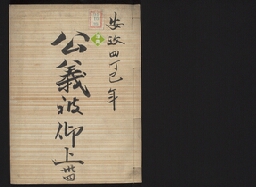 安政四丁巳年
公義被仰上